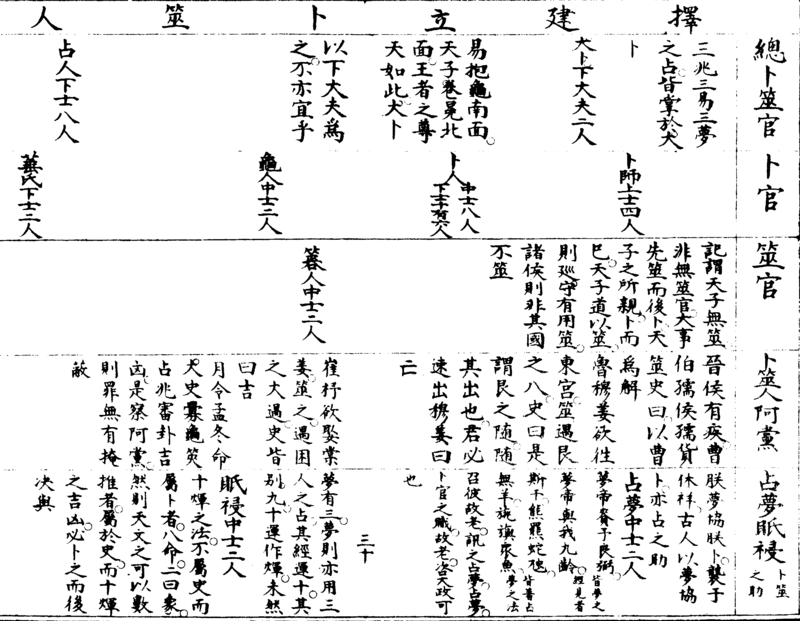 擇建立卜筮人
總卜筮官
三兆三易三夢
之占皆掌於大
卜
大卜下大夫二人
易抱龜南面
天子卷冕北
面王者之尊
天如此大卜
以下大夫爲
之不亦宜乎
占人下士八人
卜官
卜師上士四人
卜人中士八人
下士十有六人
龜人中士二人
菙氏下士二人
筮官
記謂天子無筮
非無筮官大事
先筮而後卜天
子之所親卜而
已天子道以筮
則廵守有用筮
諸侯則非其國
不筮
簭人中士二人
卜筮人阿黨
晉侯有疾曹
伯孺侯孺貨
筮史曰以曹
爲解
魯穆姜欲往
東宮筮遇艮
之八史曰是
謂艮之隨隨
其出也君必
速出穆姜曰
亡
崔杼欲娶棠
姜筮之遇困
之大過史皆
曰吉
月令孟冬命
大史釁龜筴
占兆審卦吉
凶是察阿黨
則罪無有掩
蔽
占夢眡祲
卜筮
之助
朕夢協朕卜襲于
休祥古人以夢協
卜亦占之助
占夢中士二人
夢帝賚予良弼皆夢之
夢帝與我九齡經見者
斯干熊羆蛇虺皆善占
無羊旐旟衆魚夢之法
召彼故老訊之占夢占夢
卜官之職故老咨天政可
也
三十
夢有三夢則亦用三
人之占其經運十其
別九十運作煇未然
眡祲中士二人
十煇之法不屬史而
屬卜者八命一曰象
然則天文之可以數
推者屬於史而十煇
之吉凶必卜之而後
决與